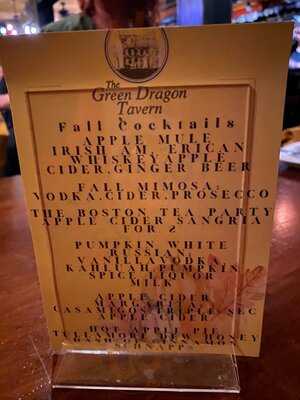 The
Green Dragon
Tavern
Fall Cocktails
APPLE MULE
IRISH AMERICAN
WHISKEY,APPLE
CIDER,GINGER BEER
FALL MIMOSA:
VODKA,CIDER,PROSECCO
THE BOSTON TEA PARTY
APPLE CIDER SANGRIA
FOR 2
PUMPKIN WHITE
RUSSIAN
VANILLA VODKA
KAHLUAH PUMPKIN
SPICE LIQUOR
MILK
APPLE CIDER
MARGARITA
CASAMIGOS TRIPLE SEC
APPLE CIDER
HOT APPLE PIE
HONEY
SCHNAPPS